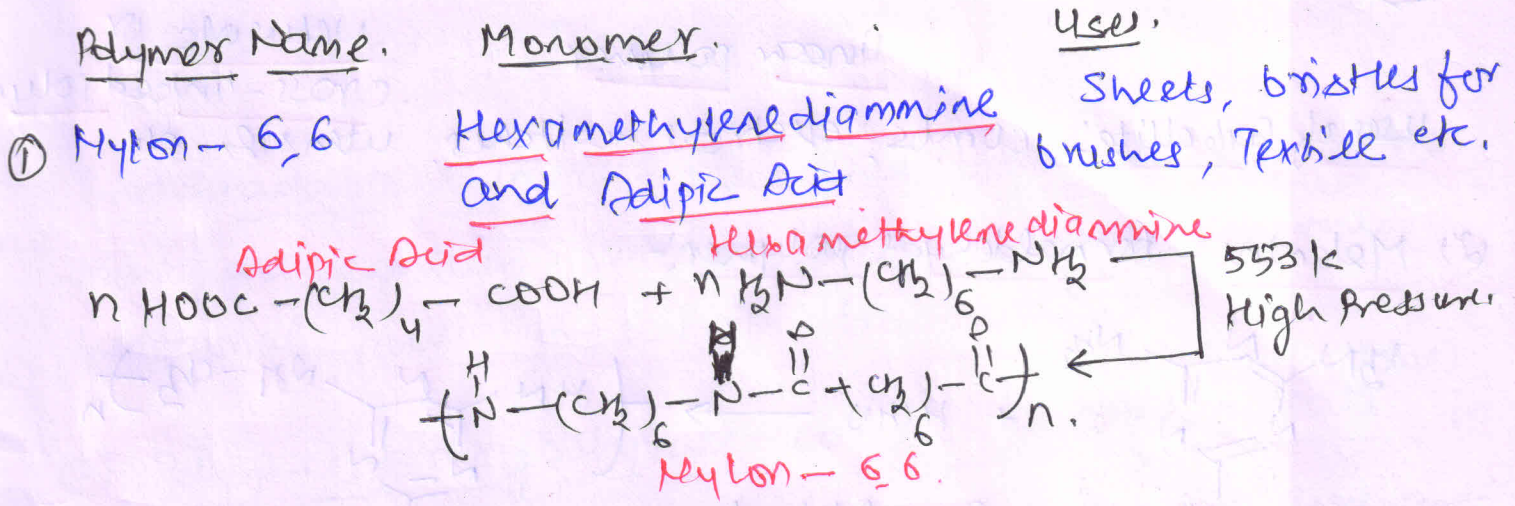 Polymer Name. Monomer. Uses.
① Nylon - 6,6 Hexamethylenediammine Sheets, bristles for
and Adipic Acid brushes, Textile etc.
Adipic Acid Hexamethylenediammine
n HOOC-(CH2)4-COOH + n H2N-(CH2)6-NH2 553k
High Pressure.
H H O O
(N-(CH2)6-N-C+CH2)6-C)n.
Nylon - 6,6.